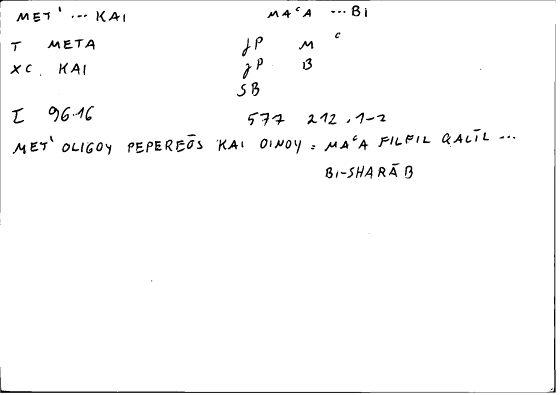 MET' ... KAI MAᶜA ... BI
T META JP M ᶜ
XC. KAI JP B
SB
I 96.16 577 212.1-2
MET' OLIGOY PEPEREŌS KAI OINOY = MAᶜA FILFIL QALĪL ...
BI-SHARĀB